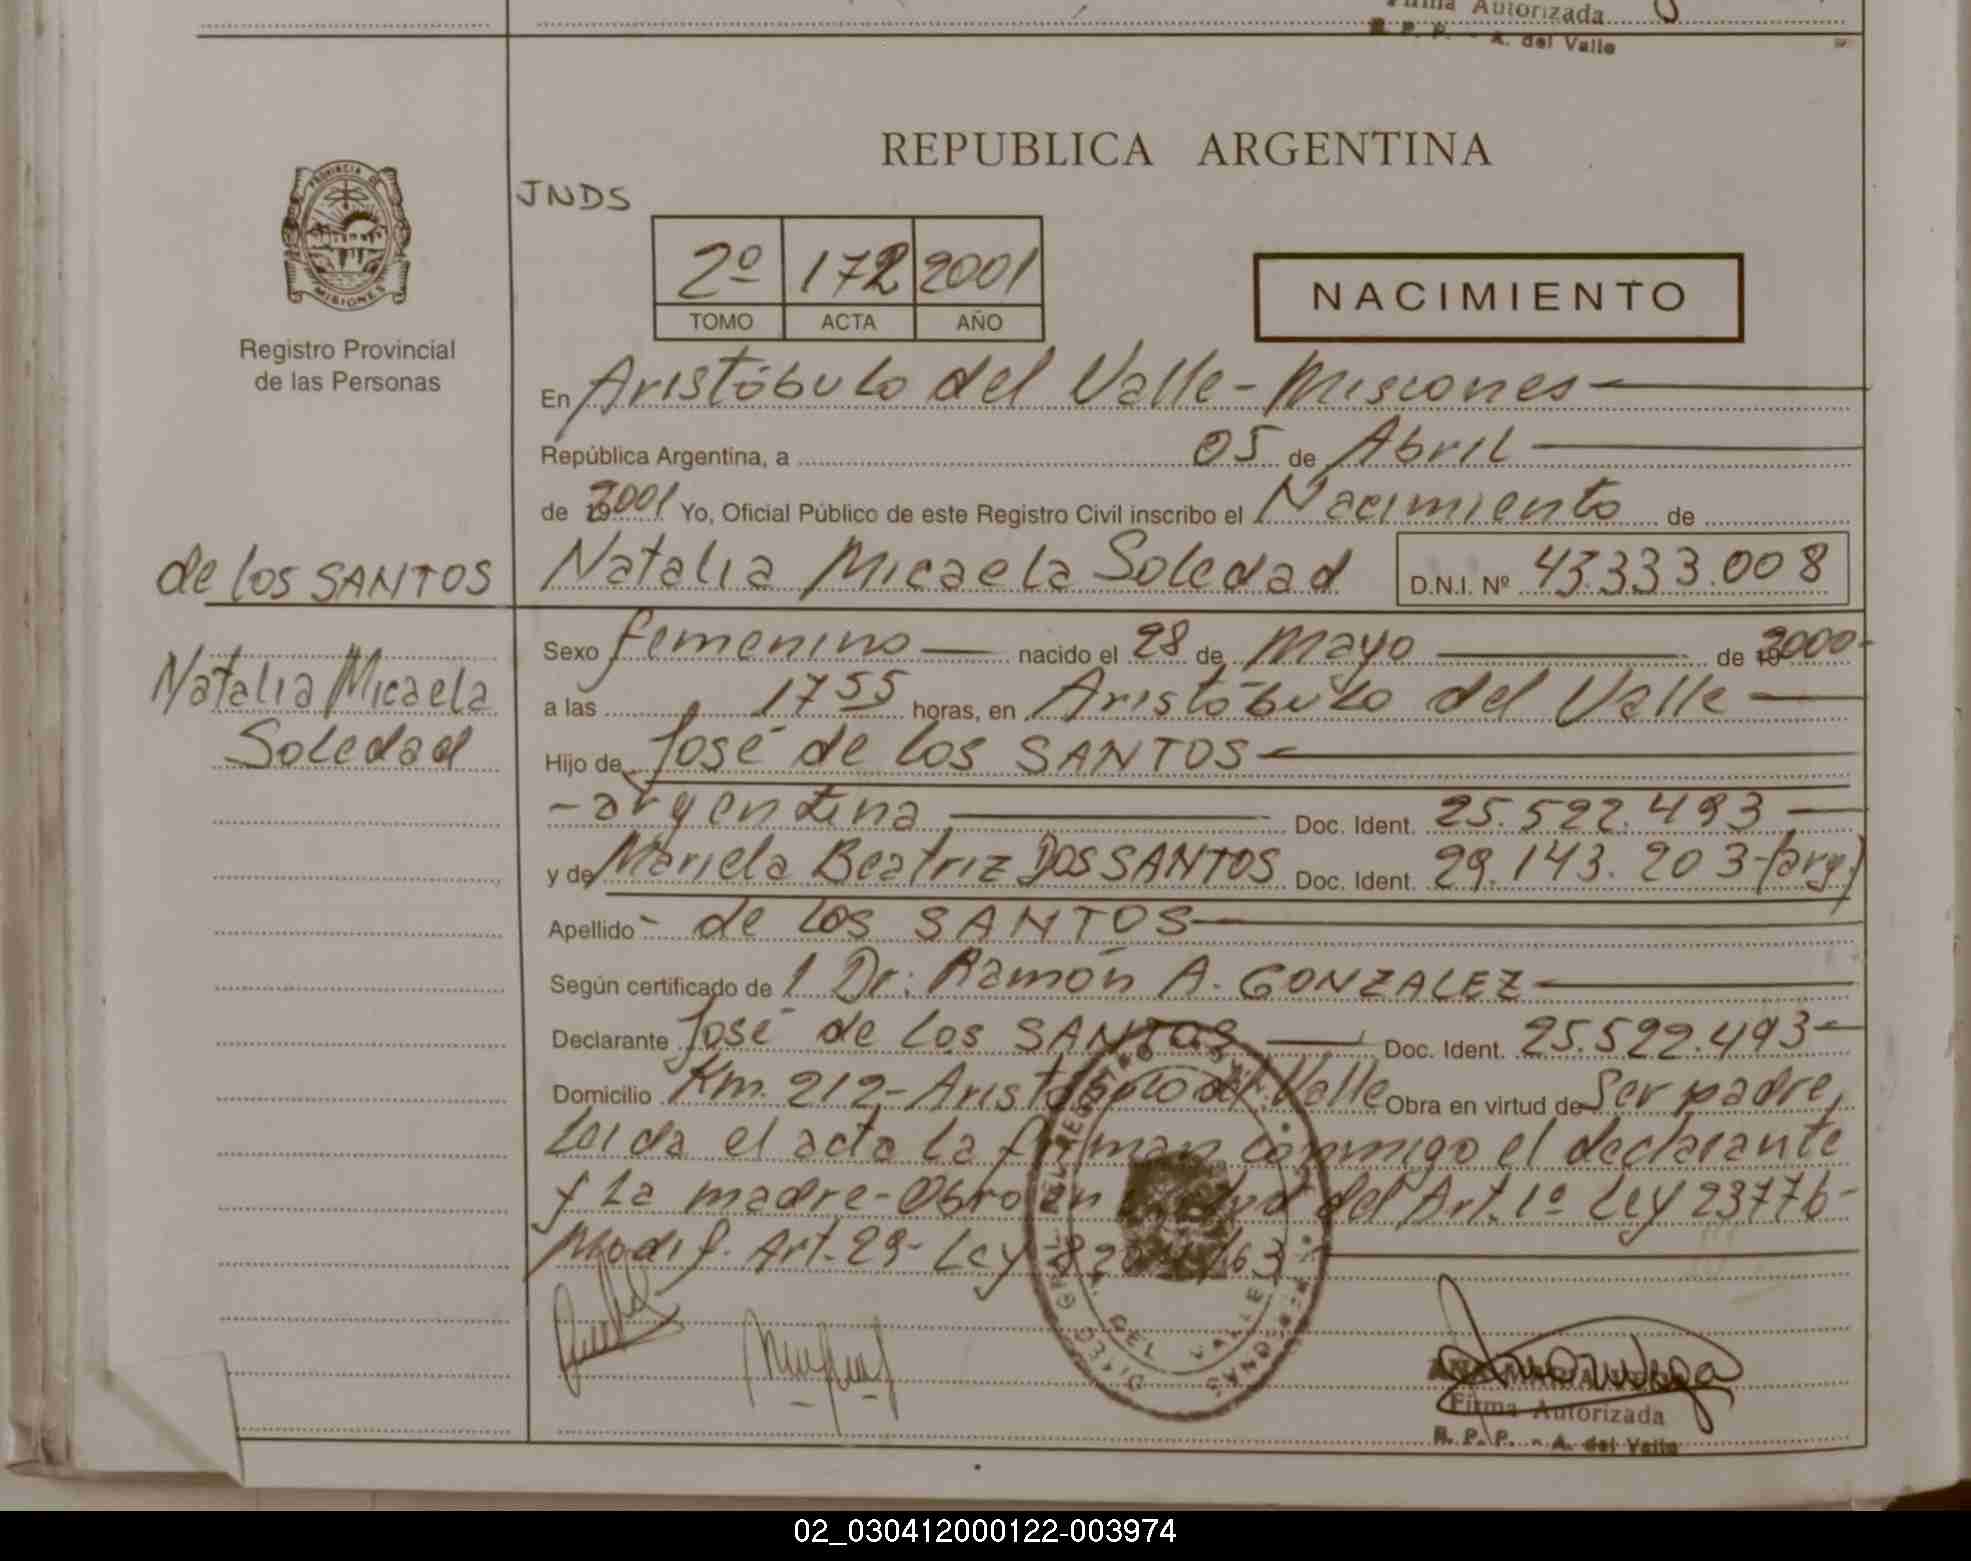 Firma Autorizada
R. P. P. - A. del Valle
REPUBLICA ARGENTINA
PROVINCIA DE
MISIONES
JNDS
2º 172 2001
TOMO ACTA AÑO
NACIMIENTO
Registro Provincial
de las Personas
En Aristóbulo del Valle - Misiones
República Argentina, a 05 de Abril
de 2001 Yo, Oficial Público de este Registro Civil inscribo el Nacimiento de
de los SANTOS
Natalia Micaela Soledad D.N.I. Nº 43.333.008
Natalia Micaela
Soledad
Sexo femenino nacido el 28 de Mayo de 2000-
a las 17 55 horas, en Aristóbulo del Valle
Hijo de José de los SANTOS
- argentina Doc. Ident. 25.522.493
y de Mariela Beatriz DOS SANTOS Doc. Ident. 29.143.203-(arg)
Apellido - de los SANTOS
Según certificado de l Dr: Ramón A. GONZALEZ
Declarante José de los SANTOS Doc. Ident. 25.522.493-
Domicilio Km. 212- Aristóbulo del Valle Obra en virtud de Ser padre,
Leida el acta la firman conmigo el declarante
y la madre- Obro en virtud del Art. 1º Ley 23776-
Modif. Art. 29- Ley 8204/63
DEL VALLE
Firma Autorizada
R. P. P. - A. del Valle
02_030412000122-003974